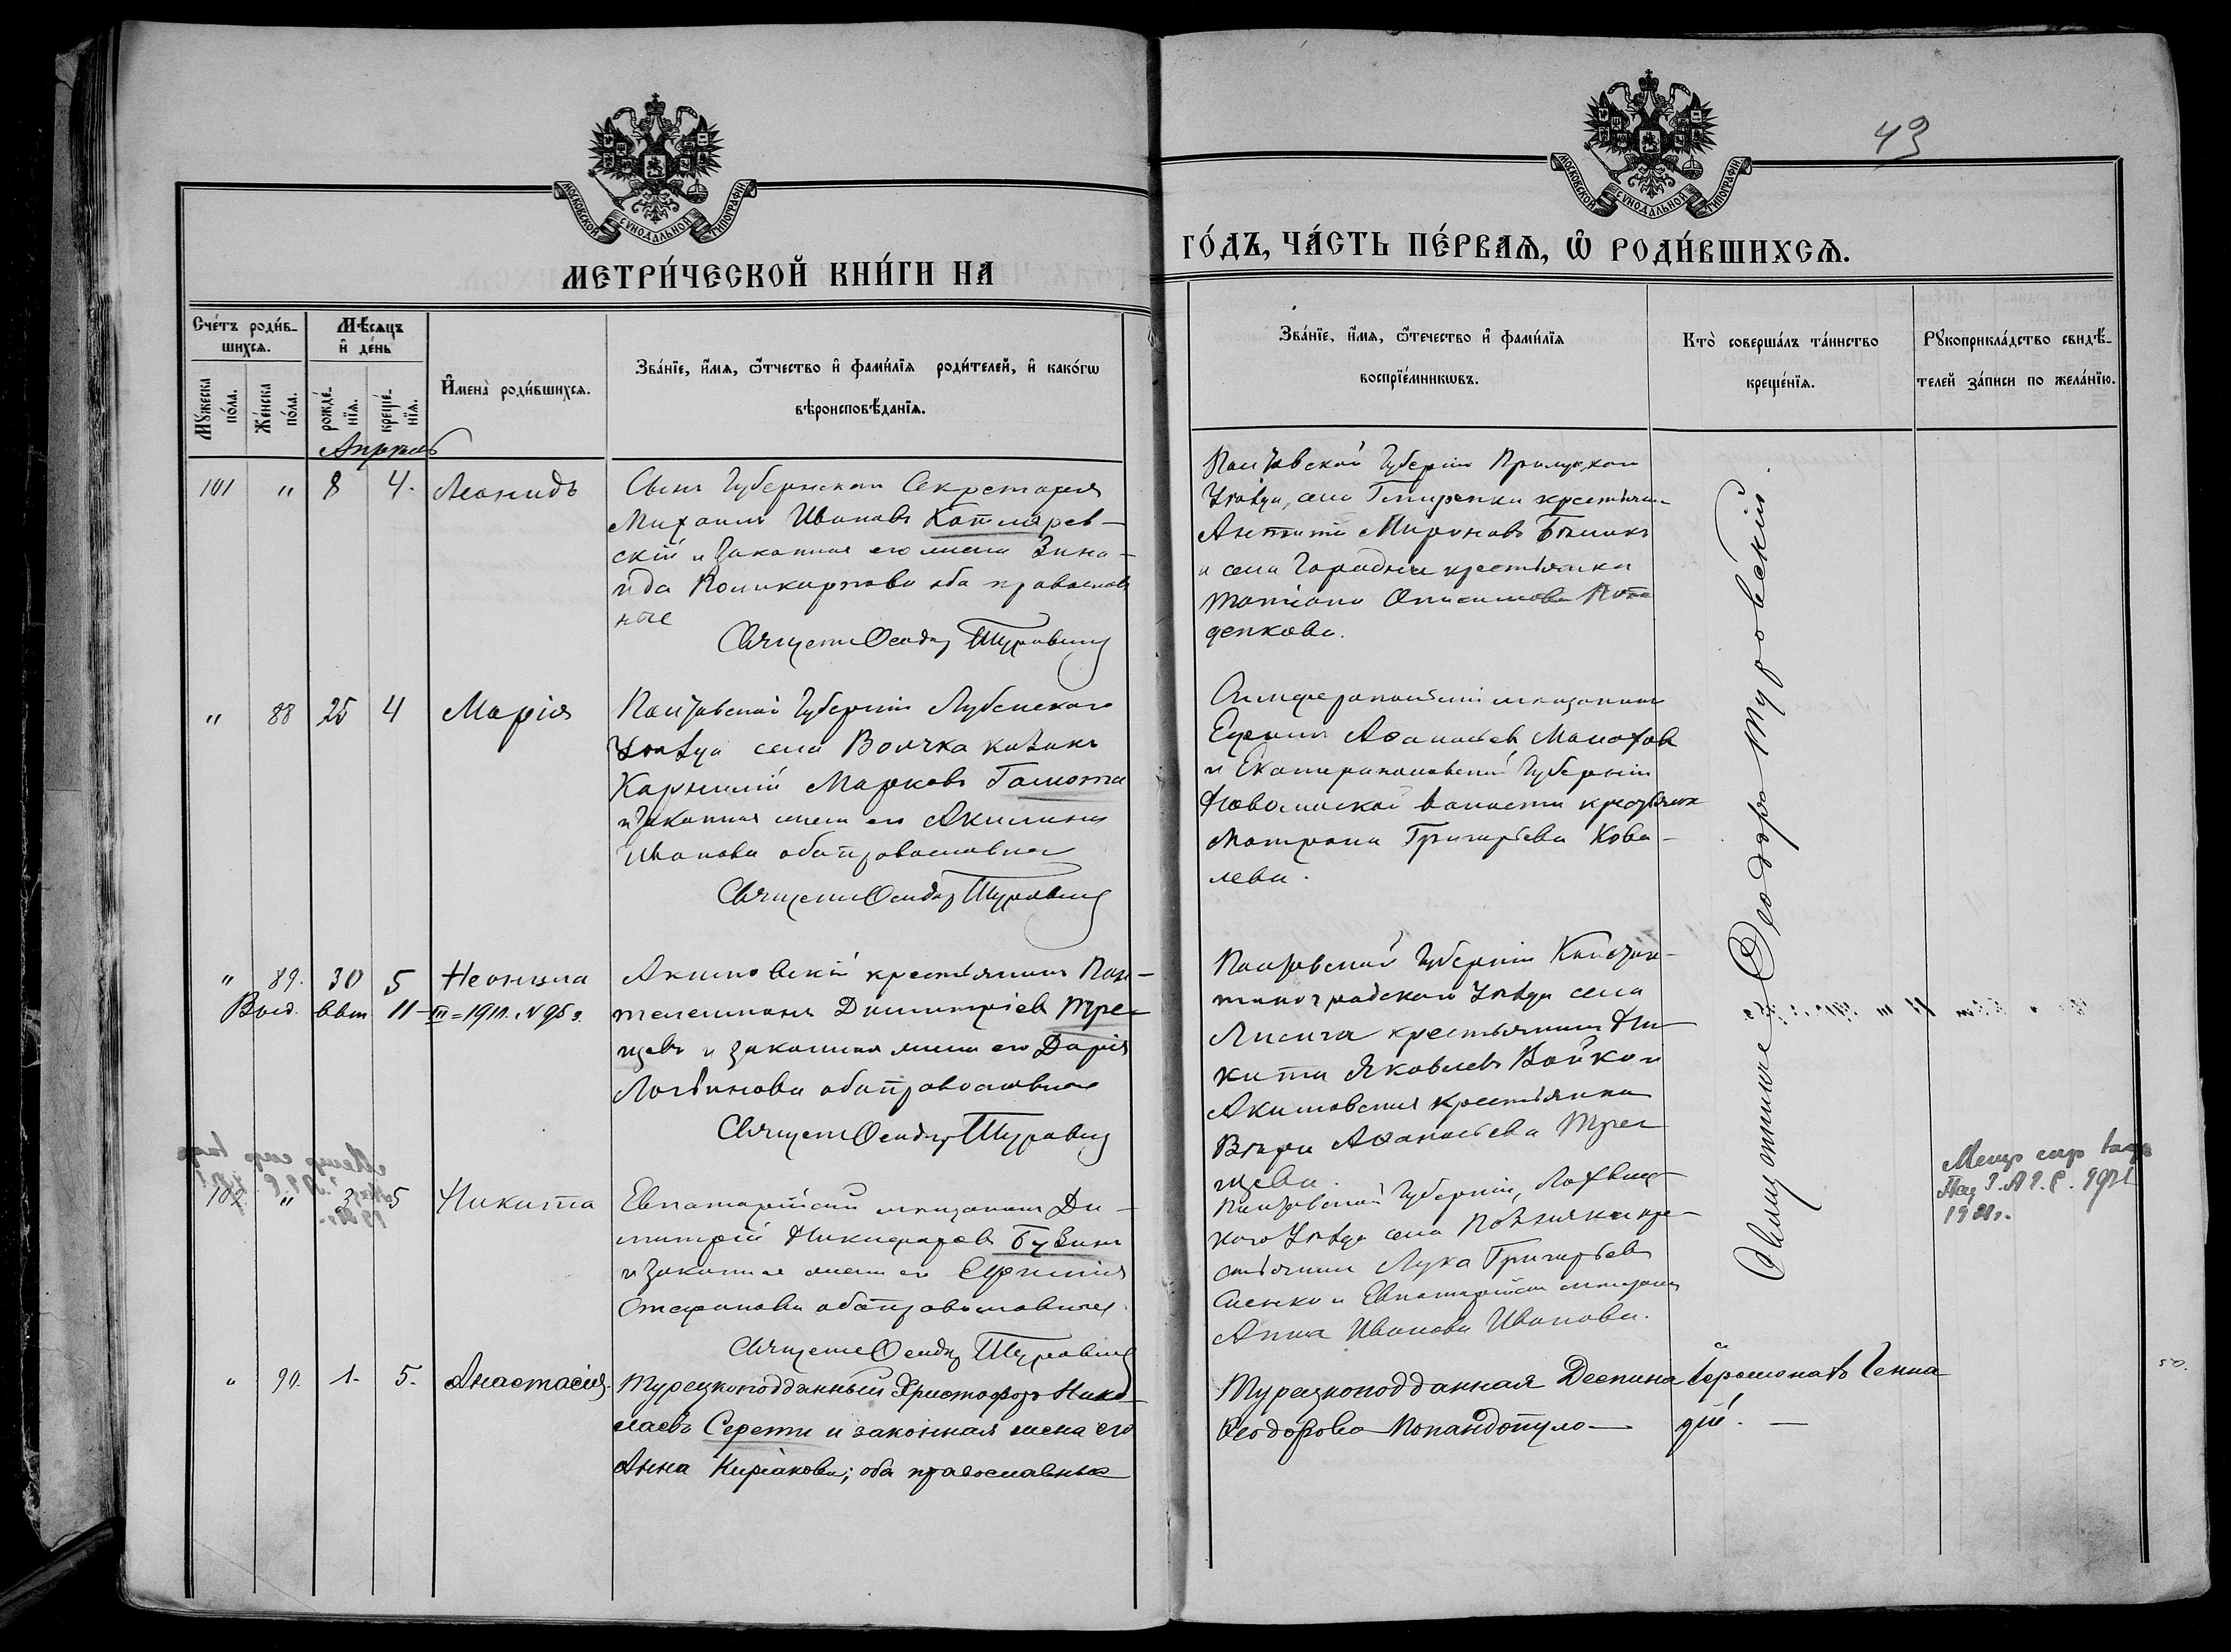 43
МОСКОВСКОЙ СѴНОДАЛЬНОЙ ТИПОГРАФІИ
МОСКОВСКОЙ СѴНОДАЛЬНОЙ ТИПОГРАФІИ
МЕТРИ́ЧЕСКОЙ КНИ́ГИ НА
ГО́ДЪ, ЧА́СТЬ ПЕ́РВАѦ, Ѡ҆ РОДИ́ВШИХСѦ.
Сче́тъ роди́в-
шихсѧ.
Мꙋ́жеска
по́ла.
Же́нска
по́ла.
Мѣ́сяцъ
и҆ де́нь
рожде́-
нїѧ.
креще́-
нїѧ.
И҆мена̀ роди́вшихсѧ.
Зва́нїе, и҆́мѧ, ѻ҆́тчество и҆ фами́лїѧ роди́телей, и҆ како́гѡ
вѣроисповѣ́данїѧ.
Зва́нїе, и҆́мѧ, ѻ҆́течество и҆ фами́лїѧ
воспрїе́мникѡвъ.
Кто̀ соверша́лъ та́инство
креще́нїѧ.
Рꙋкоприкла́дство свидѣ́-
телей за́писи по жела́нїю.
Апрель
101 " 8 4. Леонидъ
Губернскаго Секретаря
Михаилъ Ивановъ Котлярев-
скій и законная его жена Зина-
ида Поликарпова оба православ
ные
Священ Ѳеодор Туровскій
Полтавской Губерніи Прилукскаго
Уѣзда, села крестьянинъ
Мироновъ
и села Городни крестьянка
Татіана Онисимова
денкова.
" 88 25 4 Марія
Полтавской Губерніи Лубенскаго
Уѣзда села Волчка козакъ
Корнилій Марковъ Гамота
и законная жена его Акилина
Иванова оба православные
Священ Ѳеодор Туровскій
Симферопольскій мѣщанинъ
Аѳанасьевъ Малаховъ
и Екатеринославской Губерніи
волости крестьянка
Матрона Григорьева Кова-
лева.
" 89. 30 5 Неонила
Выд. 11-III=1911. N 95
Акимовскій крестьянинъ Пан-
телеимонъ Димитріевъ Тре-
щевъ и законная жена его Дарія
Логвинова оба православные
Священ Ѳеодор Туровскій
Полтавской Губерніи Констан-
тиноградскаго Уѣзда села
крестьянинъ Ни-
кита Яковлевъ Бойко и
Акимовская крестьянка
Вѣра Аѳанасьева Тре-
щева.
102 " 3 5 Никита
Евпаторійскій мѣщанинъ Ди-
митрій Никифоровъ Бузинъ
и законная жена его Евфимія
Стефанова оба православные
Священ Ѳеодор Туровскій
Полтавской Губерніи, Лохвиц-
каго Уѣзда села Позняки кре-
стьянинъ Лука Григорьевъ
и Евпаторійская мѣщанка
Анна Иванова Иванова.
Священникъ Ѳеодоръ Туровскій
" 90. 1. 5. Анастасія.
Турецкоподданный Христофоръ Нико-
лаевъ Серети и законная жена его
Анна Киріакова; оба православные
Турецкоподданная Деспина
Ѳеодорова Попандопуло —
Іеромонахъ Генна
дій. —